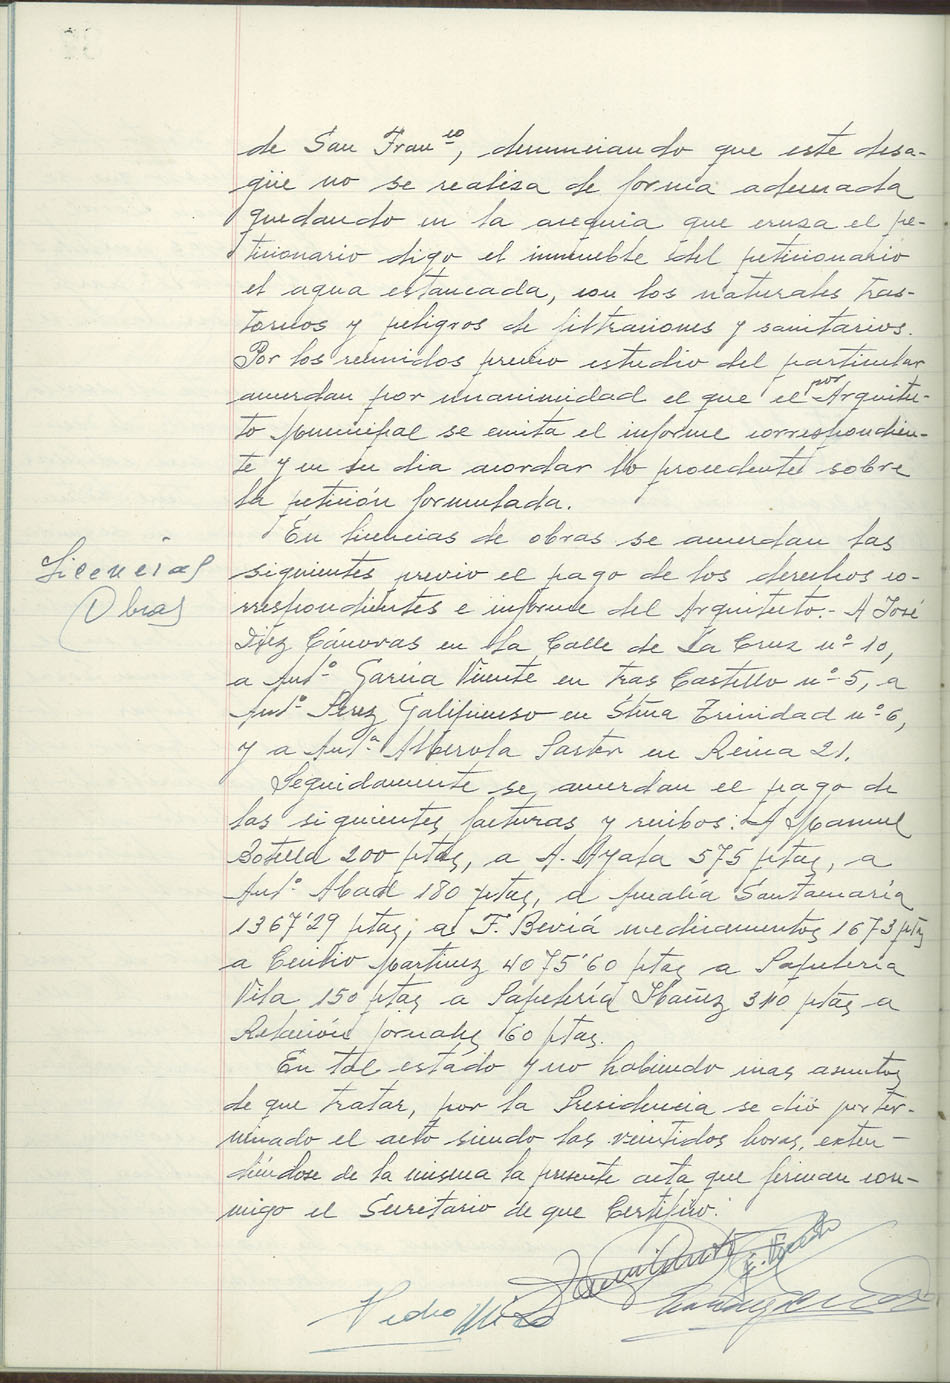 de San Fran<sup>co</sup>, denunciando que este desa-
güe no se realiza de forma adecuada
quedando en la acequia que cruza el pe-
ticionario digo el inmueble del peticionario
el agua estancada, con los naturales tras-
tornos y peligros de filtraciones y sanitarios.
Por los reunidos previo estudio del particular
acuerdan por unanimidad el que el por Arquitec-
to Municipal se emita el informe correspondien-
te y en su dia acordar lo procedente sobre
la petición formulada.
Licencias
Obras
En licencias de obras se acuerdan las
siguientes previo el pago de los derechos co-
rrespondientes e informe del Arquitecto.- A José
Díez Cánovas en la Calle de La Cruz nº 10,
a Antº García Vicente en tras Castillo nº 5, a
Antº Pérez Galipienso en Stma Trinidad nº 6,
y a Antª Alberola Pastor en Reina 21.
Seguidamente se acuerdan el pago de
las siguientes facturas y recibos: A Manuel
Botella 200 ptas, a A. Ayala 575 ptas, a
Antº Abad 180 ptas, a Amalia Santamaría
1367'29 ptas; a F. Beviá medicamentos 1673 ptas
a Emilio Martinez 4075'60 ptas a Papelería
Vila 150 ptas a Papelería Ibañez 340 ptas a
Relación jornales 160 ptas.
En tal estado y no habiendo mas asuntos
de que tratar, por la Presidencia se dió por ter-
minado el acto siendo las veintidos horas, exten-
diéndose de la misma la presente acta que firman con-
migo el Secretario de que Certifico.
Pedro